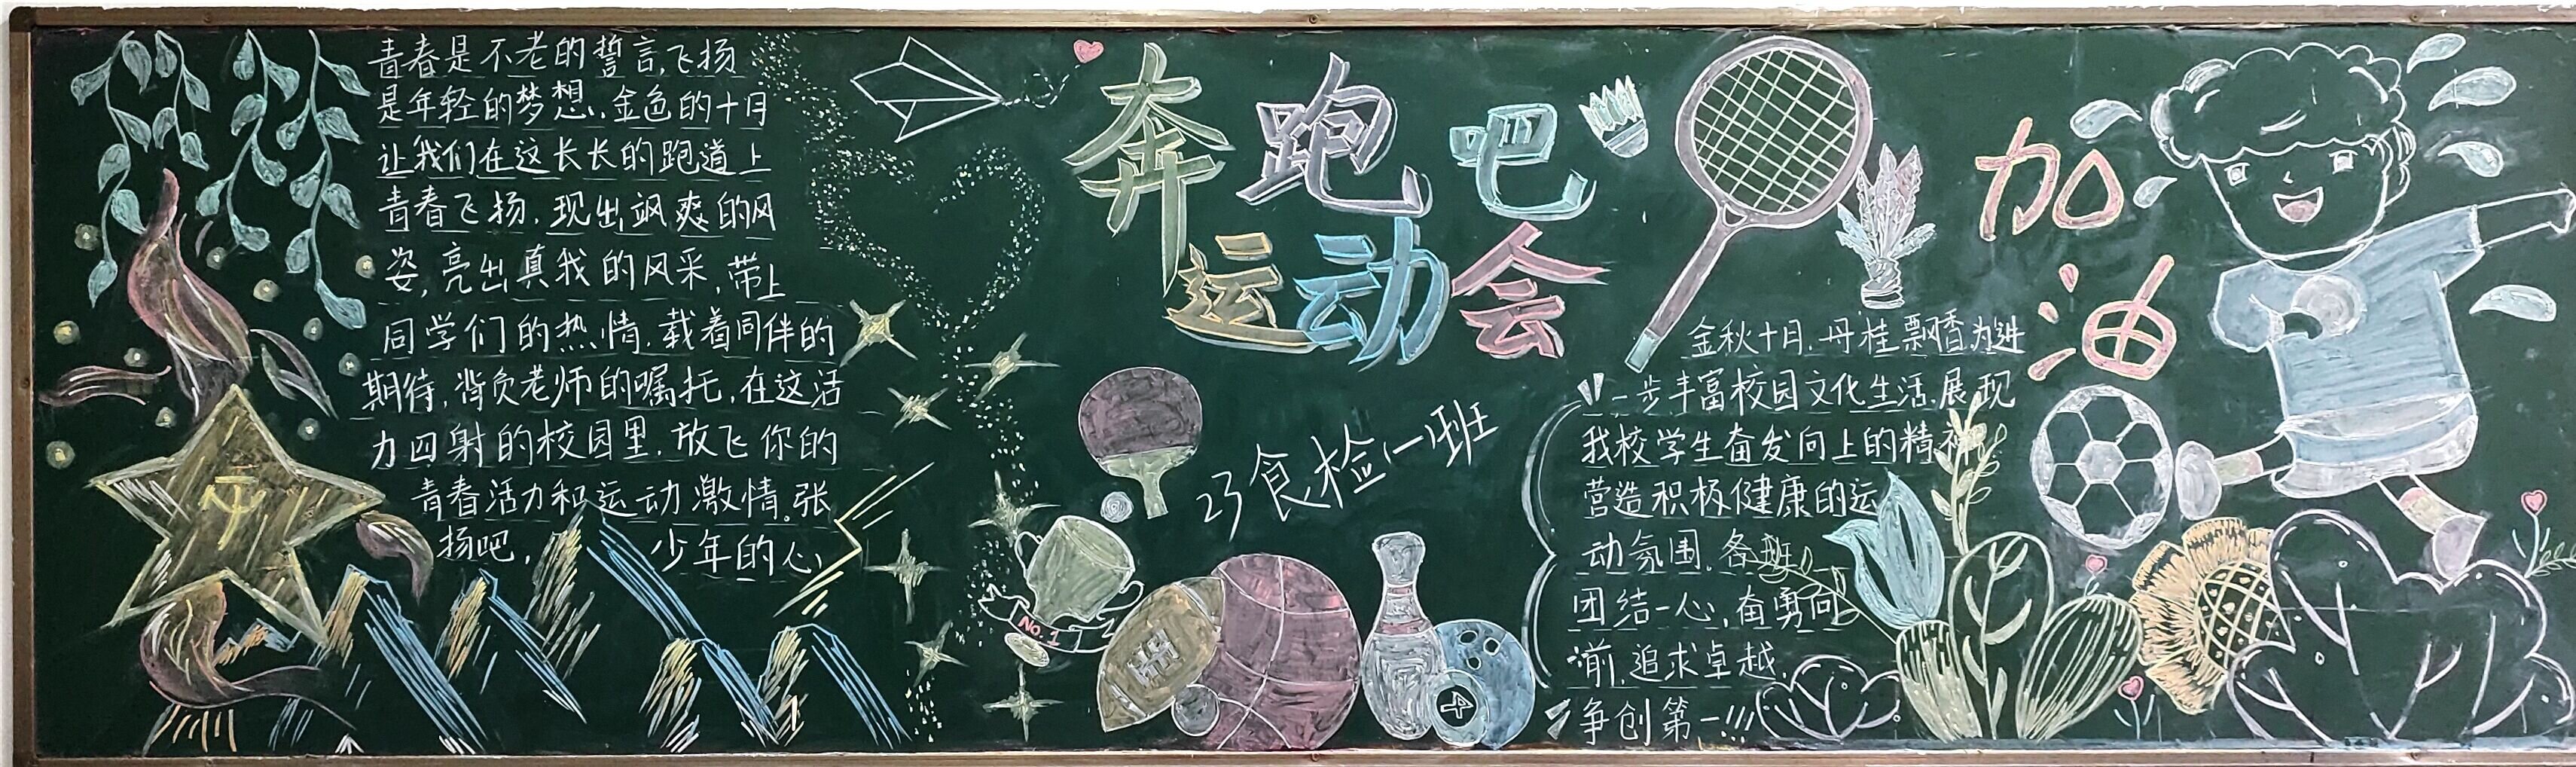 青春是不老的誓言,飞扬
是年轻的梦想,金色的十月
让我们在这长长的跑道上
青春飞扬.现出飒爽的风
姿,亮出真我的风采,带上
同学们的热情.载着同伴的
期待,背负老师的嘱托,在这活
力四射的校园里.放飞你的
青春活力和运动激情。张
扬吧, 少年的心
奔跑吧
运动会
23食检一班
No.1
金秋十月.丹桂飘香为进
一步丰富校园文化生活.展现
我校学生奋发向上的精神
营造积极健康的运
动氛围.各班
团结一心,奋勇向
前,追求卓越.
争创第一!!!
加
油